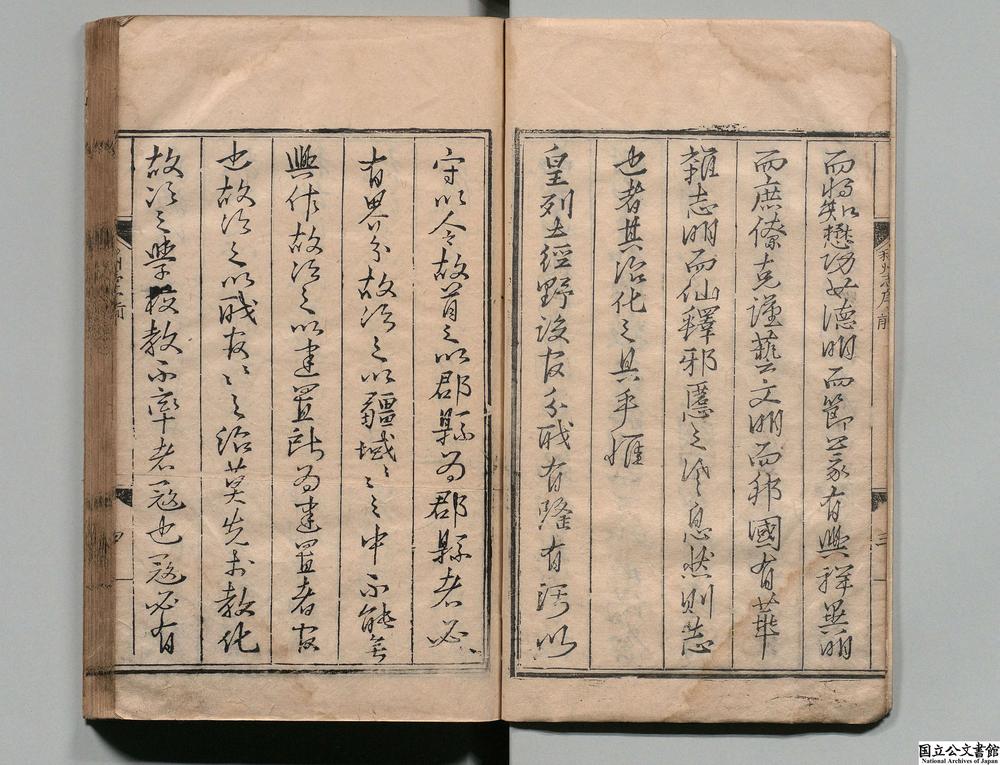 而將知懋功女德明而節義有興祥異明
而庶僚克謹藝文明而邦國有華
雜志明而仙釋邪慝之迷息然則志
也者其治化之具乎惟
皇列土經野設官分職有隆有汚以
守以令故首之以郡縣為郡縣者必
有界分故次之以疆域疆域之中不能無
興作故次之以建置所為建置者官
也故次之以職官職官之治莫先於教化
故次之學校教不率者寇也寇必有
国立公文書館
National Archives of Japan